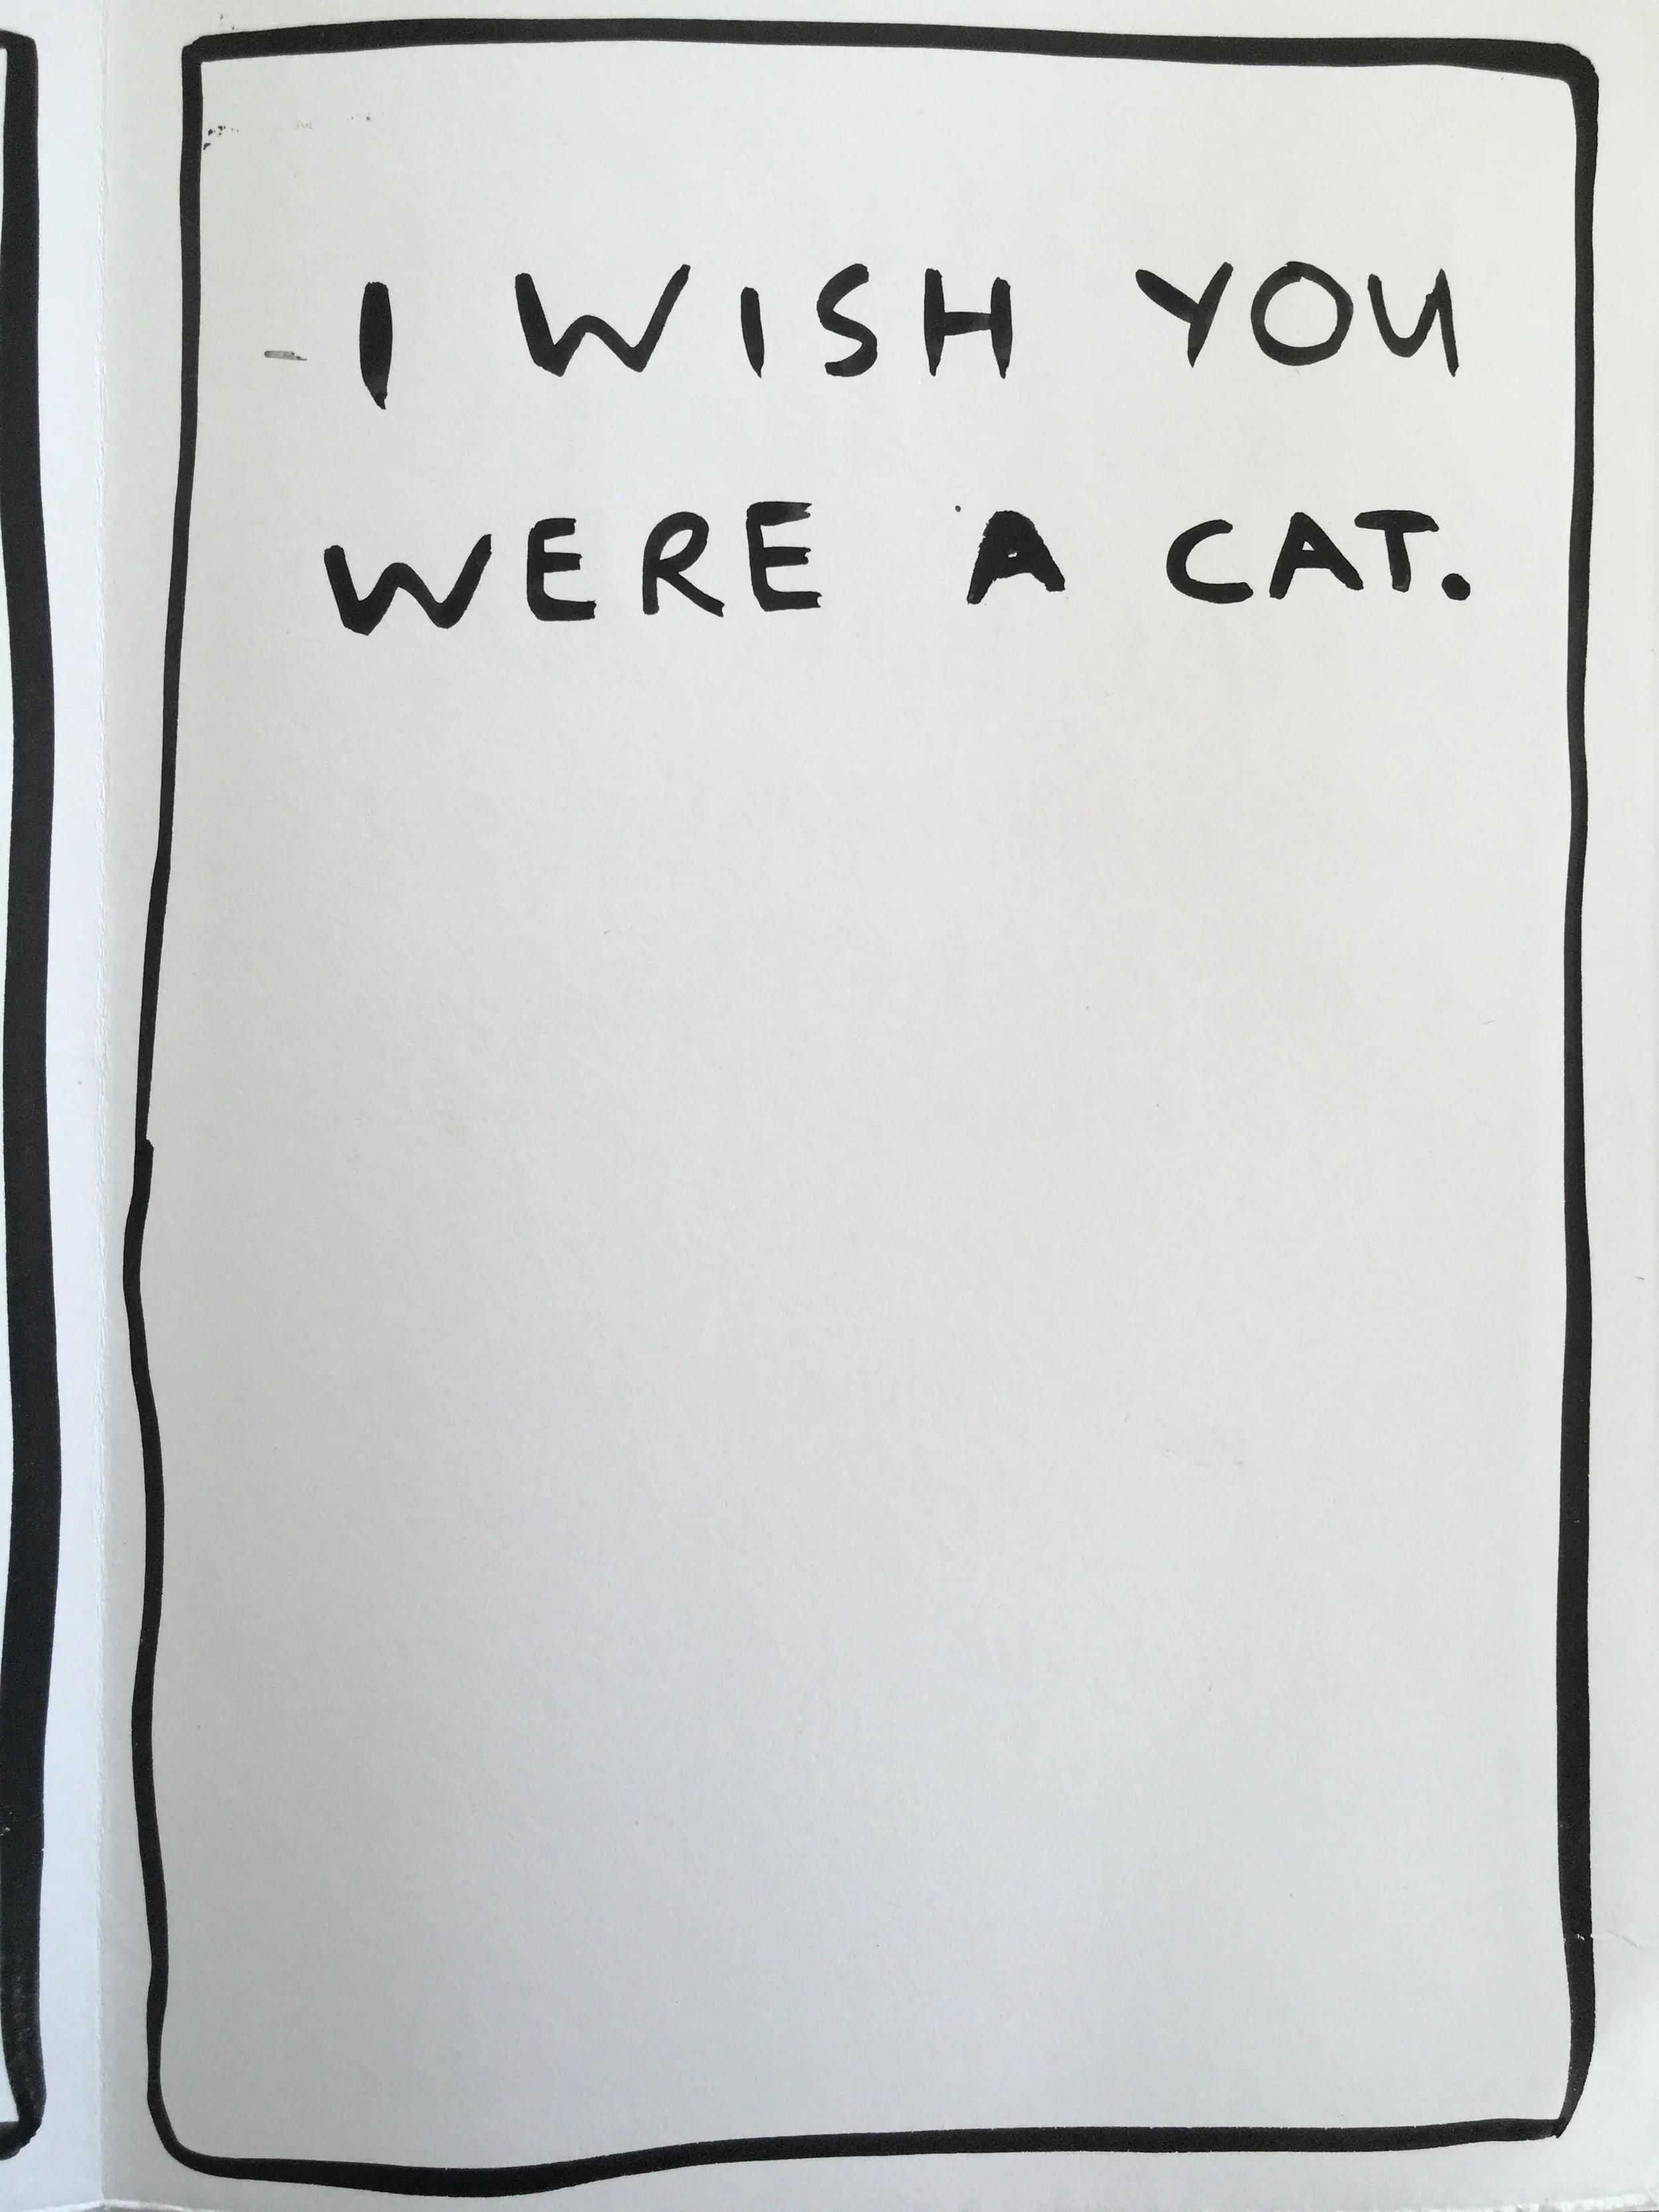 I WISH YOU
WERE A CAT.